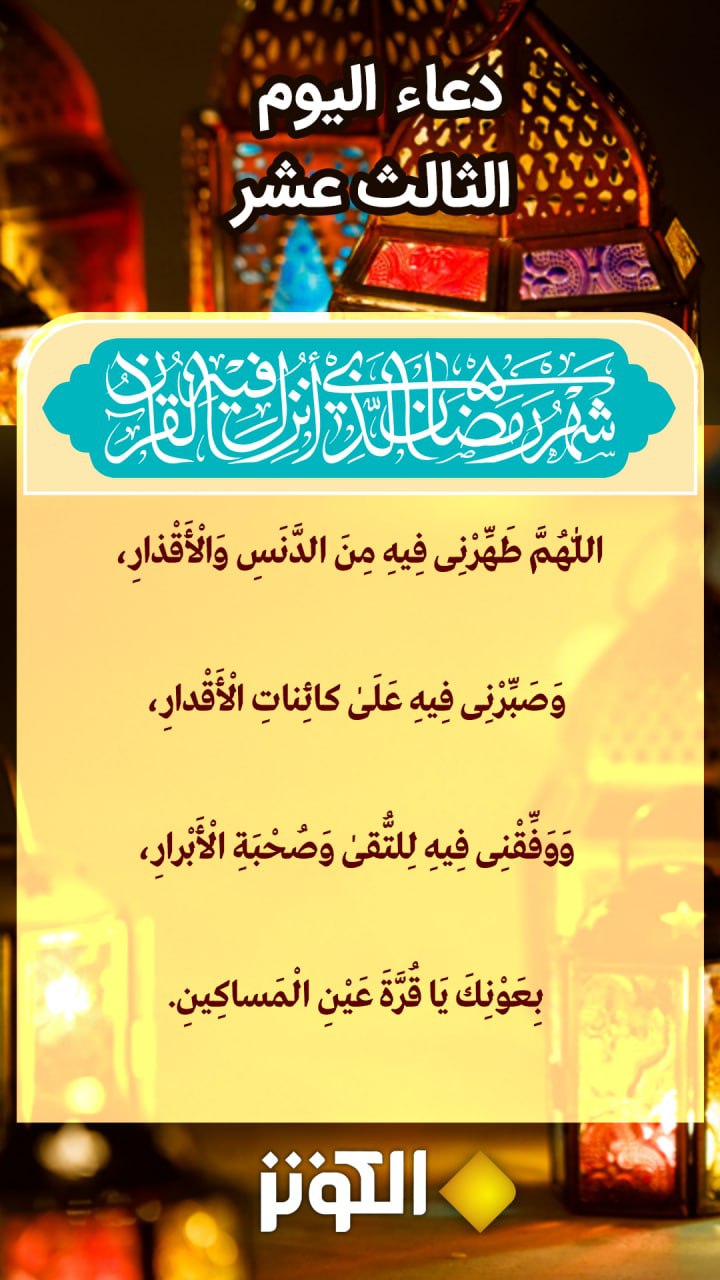 دعاء اليوم
الثالث عشر
شهر رمضان الذي أنزل فيه القرآن
اللّٰهُمَّ طَهِّرْنِى فِيهِ مِنَ الدَّنَسِ وَالْأَقْذارِ،
وَصَبِّرْنِى فِيهِ عَلَىٰ كائِناتِ الْأَقْدارِ،
وَوَفِّقْنِى فِيهِ لِلتُّقىٰ وَصُحْبَةِ الْأَبْرارِ،
بِعَوْنِكَ يَا قُرَّةَ عَيْنِ الْمَساكِينِ.
الكوثر